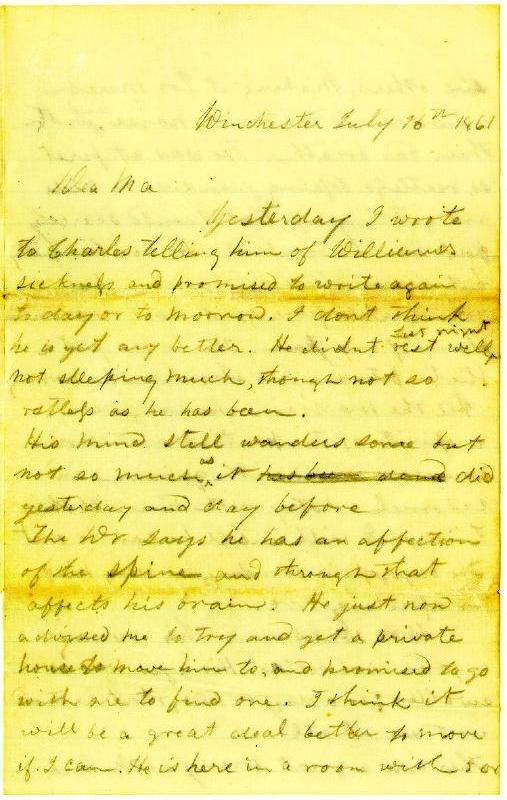 Winchester July 16th 1861
Dea Ma
Yesterday I wrote
to Charles telling him of Williams
sickness and promised to write again
to day or to morrow. I dont think
he is yet any better. He didnt rest well last night
not sleeping much, though not so
restless as he has been.
His mind still wanders some but
not so much as it has been did
yesterday and day before
The Dr says he has an affection
of the spine and through that
affects his brain. He just now
advised me to try and get a private
house to move him to, and promised to go
with me to find one. I think it
will be a great deal better to move
if I can. He is here in a room with 5 or